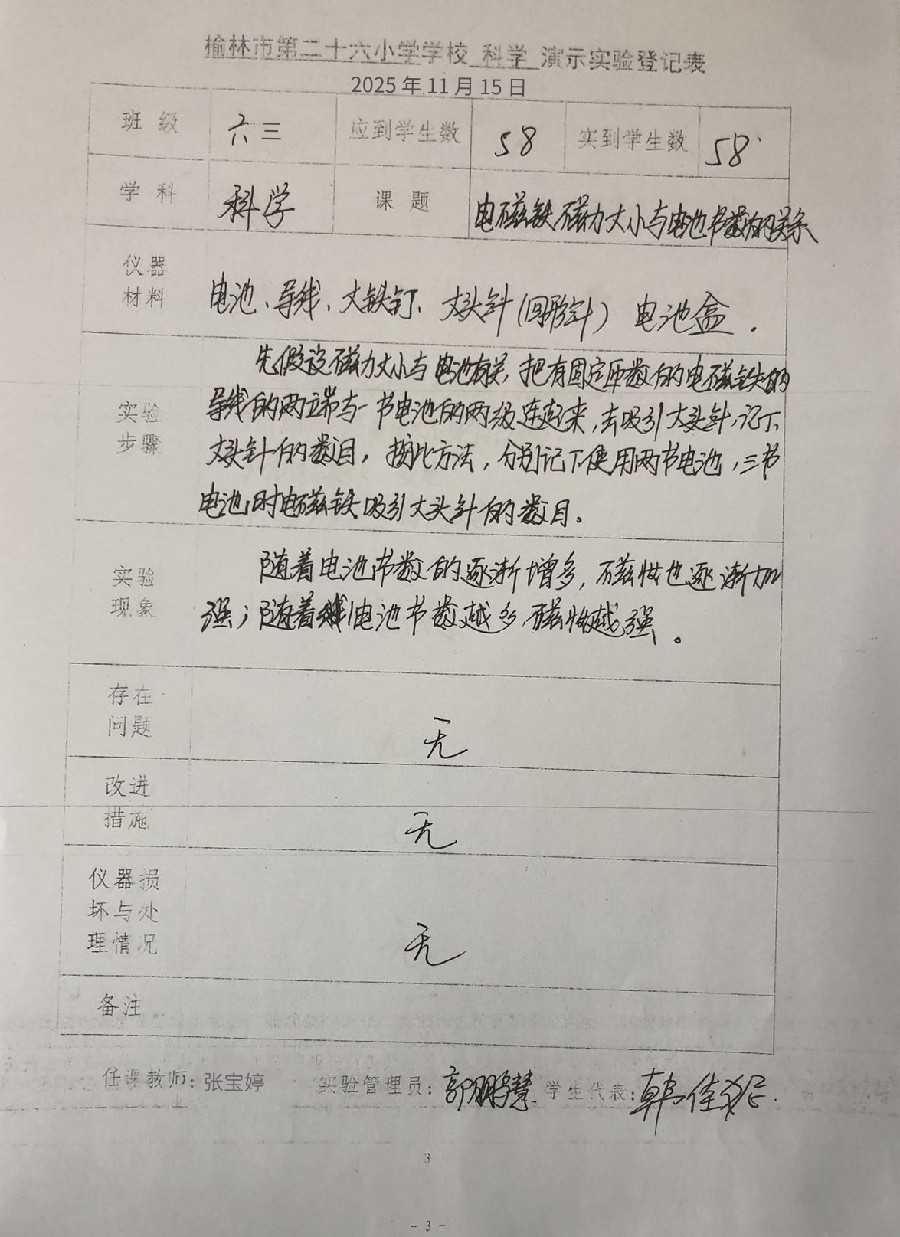 榆林市第二十六小学学校 科学 演示实验登记表
2025年11月15日
班 级 六三 应到学生数 58 实到学生数 58
学 科 科学 课 题 电磁铁磁力大小与电池节数的关系
仪器
材料
电池、导线、大铁钉、大头针(回形针) 电池盒.
实验
步骤
先假设磁力大小与电池有关,把有固定匝数的电磁铁的
导线的两端与一节电池的两级连起来,去吸引大头针,记下
大头针的数目,按此方法,分别记下使用两节电池,三节
电池时电磁铁吸引大头针的数目。
实验
现象
随着电池节数的逐渐增多,磁性也逐渐加
强;随着电池节数越多,磁性越强。
存在
问题
无
改进
措施
无
仪器损
坏与处
理情况
无
备注
任课教师:张宝婷 实验管理员:郭鹏慧 学生代表:韩佳
业
3
- 3 -